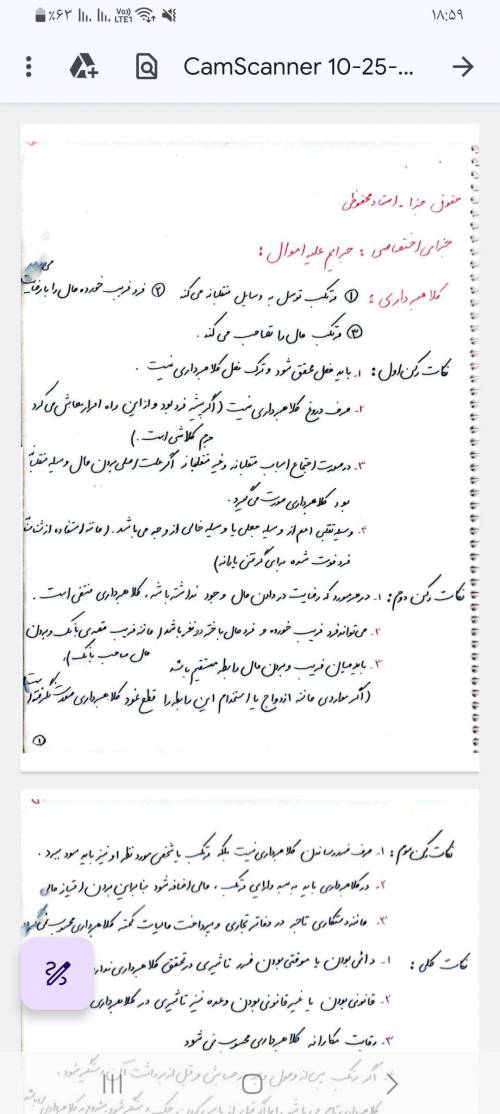 ٪۶۳ Vo)) LTE1 ۱۸:۵۹
CamScanner 10-25-...
حقوق جزا - استاد محفوظی
جزای اختصاصی : جرایم علیه اموال :
کلاهبرداری : ① مرتکب توسل به وسایل متقلبانه می کند ② فرد فریب خورده مال را با رضایت می
③ مرتکب مال را تصاحب می کند .
نکات رکن اول : ۱- باید فعل محقق شود و ترک فعل کلاهبرداری نیست .
۲- صرف دروغ کلاهبرداری نیست (اگر پیشه فرد بود و از این راه امرار معاش می کرد
جرم کلاشی است .)
۳- در صورت اجتماع اسباب متقلبانه و غیر متقلبانه اگر علت اصلی بردن مال وسیله متقلبانه
بود کلاهبرداری صورت می گیرد .
۴- وسیله تقلبی اعم از وسیله جعلی یا وسیله خالی از وجه می باشد . (مانند استفاده از
فرد فوت شده برای گرفتن یارانه)
نکات رکن دوم : ۱- در هر مورد که رضایت در دادن مال وجود نداشته باشد ، کلاهبرداری منتفی است .
۲- می تواند فرد فریب خورده و فرد مال باخته دو نفر باشد (مانند فریب متصدی بانک و بردن
مال صاحب بانک).
۳- باید میان فریب و بردن مال رابطه مستقیم باشد
(اگر مواردی مانند ازدواج یا استخدام این رابطه را قطع نمود کلاهبرداری صورت نگرفته
①
نکات رکن سوم : ۱- صرف ضرر رساندن کلاهبرداری نیست بلکه مرتکب یا شخص مورد نظر او نیز باید سود ببرد .
۲- در کلاهبرداری باید به سبد دارایی مرتکب ، مالی اضافه شود بنابراین بردن امتیاز مالی
۳- مانند دستکاری تاجر در دفاتر تجاری و پرداخت مالیات کمتر کلاهبرداری محسوب نمی شود
نکات کلی : ۱- دائمی بودن یا موقتی بودن ضرر تاثیری در تحقق کلاهبرداری ندارد
۲- قانونی بودن یا غیر قانونی بودن وعده نیز تاثیری در کلاهبرداری
۳- رقابت مکارانه کلاهبرداری محسوب نمی شود
اگر مرتکب پس از وصول وجه به حسابش و قبل از برداشت آن دستگیر شود .